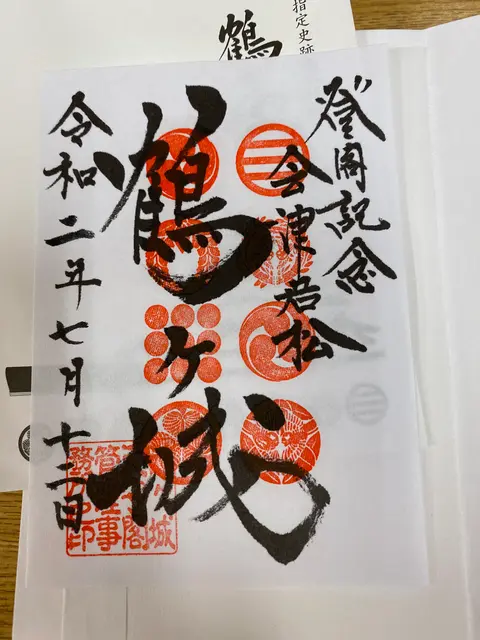 指定史跡
鶴
登閣記念
会津若松
鶴ヶ城
令和二年七月十二日
城
閣
管理事
務所印